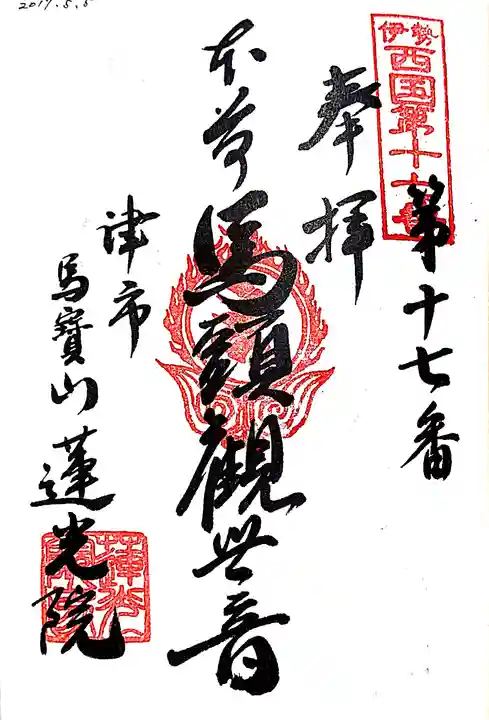 2017.5.5
伊勢
西国第十七番
第十七番
奉拝
本尊
馬頭觀世音
津市
馬寳山
蓮光院